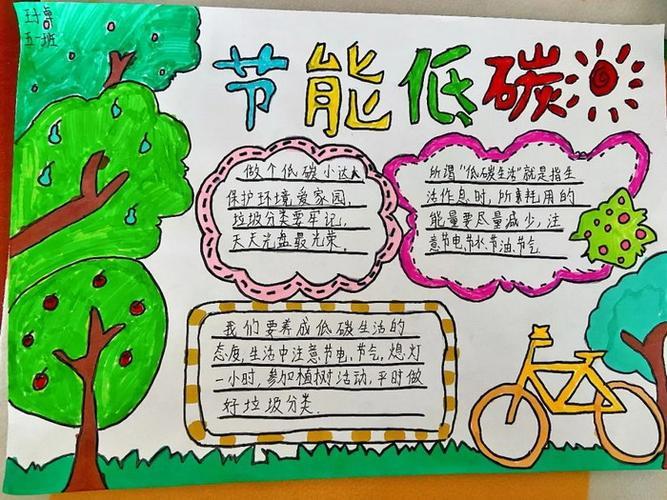 五一班
节能低碳
做个低碳小达人
保护环境爱家园,
垃圾分类要牢记,
天天光盘最光荣.
所谓“低碳生活”就是指生
活作息时,所耗用的
能量要尽量减少,注
意节电节水节油节气.
我们要养成低碳生活的
态度,生活中注意节电,节气,熄灯
一小时,参加植树活动,平时做
好垃圾分类.